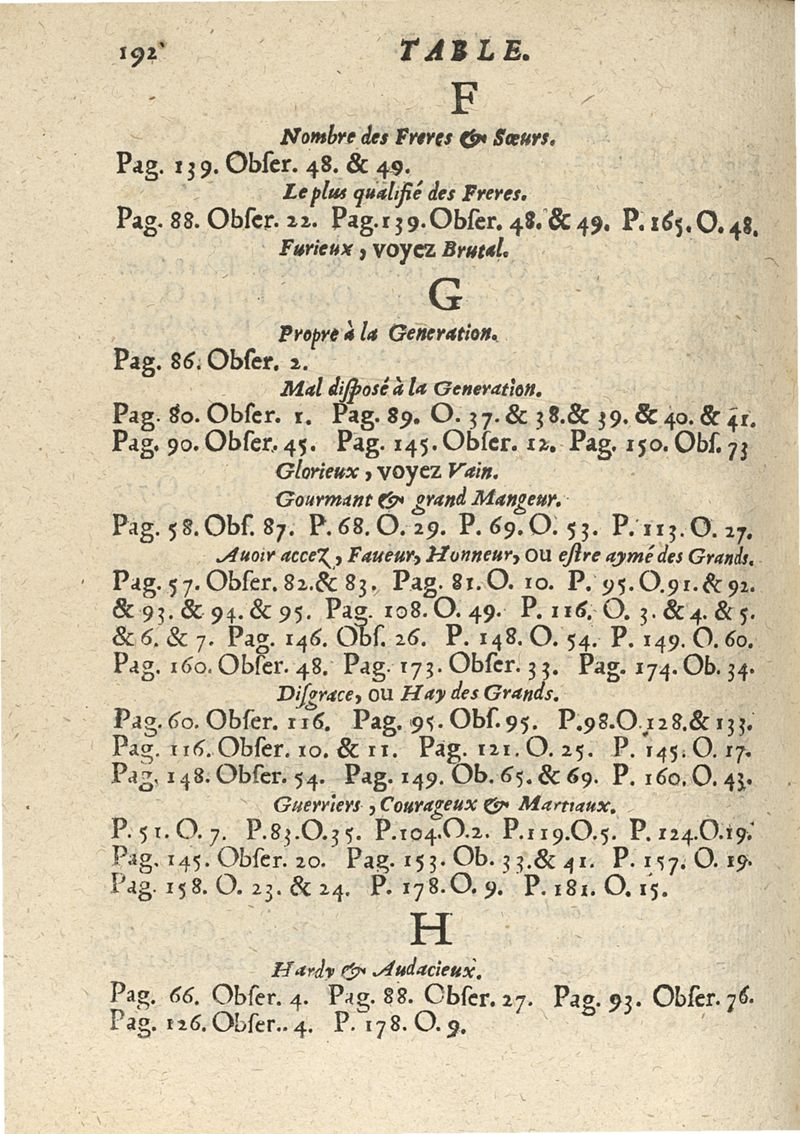 192 TABLE.
F
Nombre des Freres & Sœurs.
Pag. 139. Obſer. 48. & 49.
Le plus qualifié des Freres.
Pag. 88. Obſer. 22. Pag. 139. Obſer. 48. & 49. P. 165. O. 48.
Furieux, voyez Brutal.
G
Propre à la Generation.
Pag. 86. Obſer. 2.
Mal diſposé à la Generation.
Pag. 80. Obſer. 1. Pag. 89. O. 37. & 38. & 39. & 40. & 41.
Pag. 90. Obſer. 45. Pag. 145. Obſer. 12. Pag. 150. Obſ. 73
Glorieux, voyez Vain.
Gourmant & grand Mangeur.
Pag. 58. Obſ. 87. P. 68. O. 29. P. 69. O. 53. P. 113. O. 27.
Auoir accez, Faueur, Honneur, ou eſtre aymé des Grands.
Pag. 57. Obſer. 82. & 83. Pag. 81. O. 10. P. 95. O. 91. & 92.
& 93. & 94. & 95. Pag. 108. O. 49. P. 116. O. 3. & 4. & 5.
& 6. & 7. Pag. 146. Obſ. 26. P. 148. O. 54. P. 149. O. 60.
Pag. 160. Obſer. 48. Pag. 173. Obſer. 33. Pag. 174. Ob. 34.
Diſgrace, ou Hay des Grands.
Pag. 60. Obſer. 116. Pag. 95. Obſ. 95. P. 98. O. 128. & 133.
Pag. 116. Obſer. 10. & 11. Pag. 121. O. 25. P. 145. O. 17.
Pag. 148. Obſer. 54. Pag. 149. Ob. 65. & 69. P. 160. O. 43.
Guerriers, Courageux & Martiaux.
P. 51. O. 7. P. 83. O. 35. P. 104. O. 2. P. 119. O. 5. P. 124. O. 19.
Pag. 145. Obſer. 20. Pag. 153. Ob. 33. & 41. P. 157. O. 19.
Pag. 158. O. 23. & 24. P. 178. O. 9. P. 181. O. 15.
H
Hardy & Audacieux.
Pag. 66. Obſer. 4. Pag. 88. Obſer. 27. Pag. 93. Obſer. 76.
Pag. 126. Obſer.. 4. P. 178. O. 9.